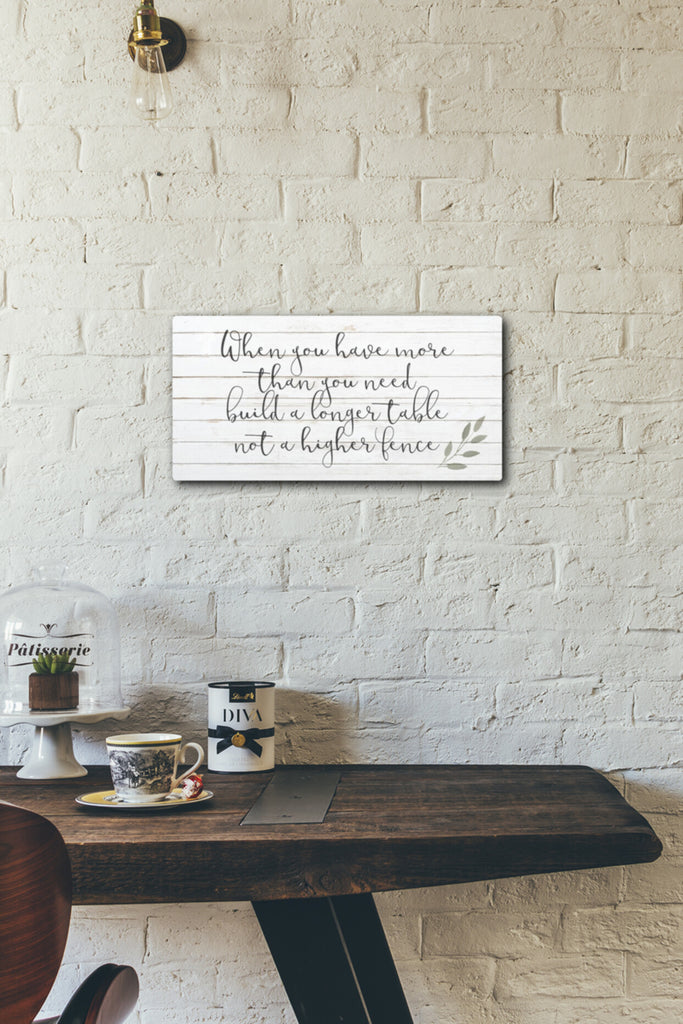 When you have more
than you need
build a longer table
not a higher fence
Pâtisserie
Lindt
DIVA